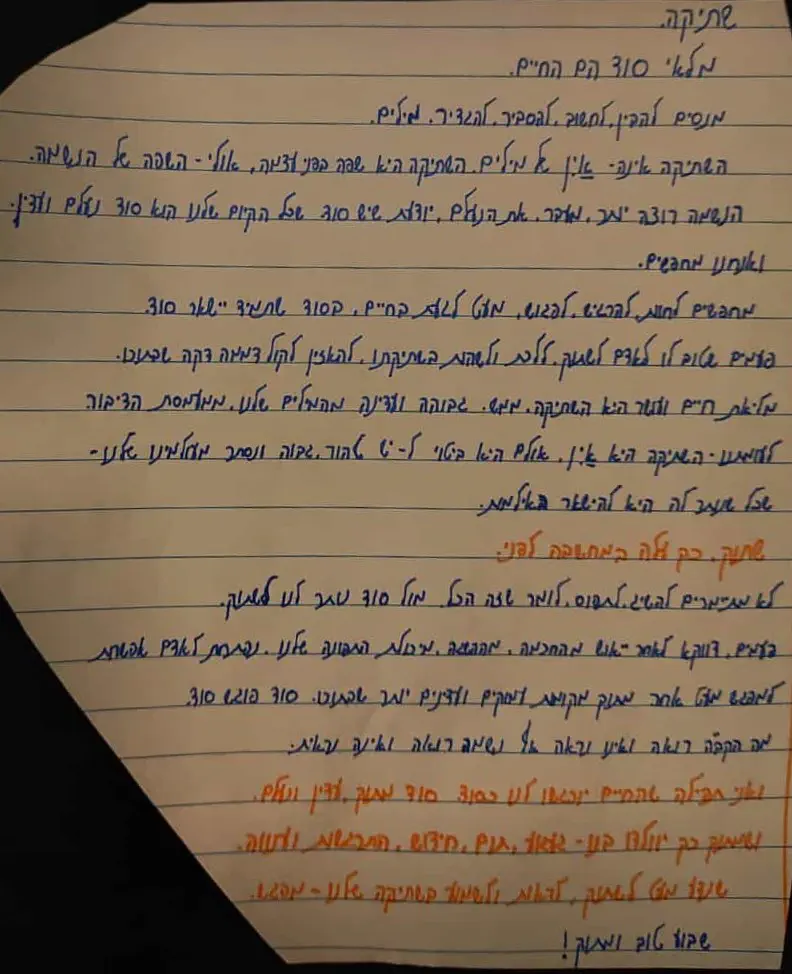 שתיקה.
מלאי סוד הם החיים.
מנסים להבין, לחשוב, להסביר, להגדיר. מילים.
השתיקה אינה- אין של מילים. השתיקה היא שפה בפני עצמה, אולי - השפה של הנשמה.
הנשמה רוצה יותר, מעבר, את הנעלם, יודעת שיש סוד שכל הקיום שלנו הוא סוד נעלם ועדין.
ואנחנו מחפשים.
מחפשים לחוות, להרגיש, לפגוש, מעט לגעת בחיים, בסוד שתמיד יישאר סוד.
פעמים שטוב לו לאדם לשתוק, ללכת ולשהות בשתיקתו, להאזין לקול דממה דקה שבתוכו.
מליאת חיים ועושר היא השתיקה, ממש. גבוהה ועדינה מהמילים שלנו, ממעמסת הדיבור.
לעומתנו - השתיקה היא אין, אולם היא ביטוי ל- יש טהור, גבוה ונסתר מעולמינו שלנו -
שכל שנותר לה היא להישאר באילמות.
שתוק, כך עלה במחשבה לפני.
לא מתיימרים להשיג, לתפוס, לומר שזה הכל. מול סוד נותר לנו לשתוק.
פעמים, דווקא לאחר ייאוש מהחכמה, מההשגה, מיכולת התפונה שלנו, נפתחת לאדם אפשרות
למפגש מעט אחר מתוך מקומות עמוקים ועדינים יותר שבתוכו. סוד פוגש סוד.
מה הקב"ה רואה ואינו נראה אף נשמה רואה ואינה נראית.
ואני תפילה שהחיים יורגשו לנו כסוד. סוד מתוק, עדין ונעלם.
ושמתוך כך יוולדו בנו - געגוע, תום, חידוש, התרגשות וענווה.
שנדע מעט לשתוק, לראות ולשמוע בשתיקה שלנו - מפגש.
שבוע טוב ומתוק!